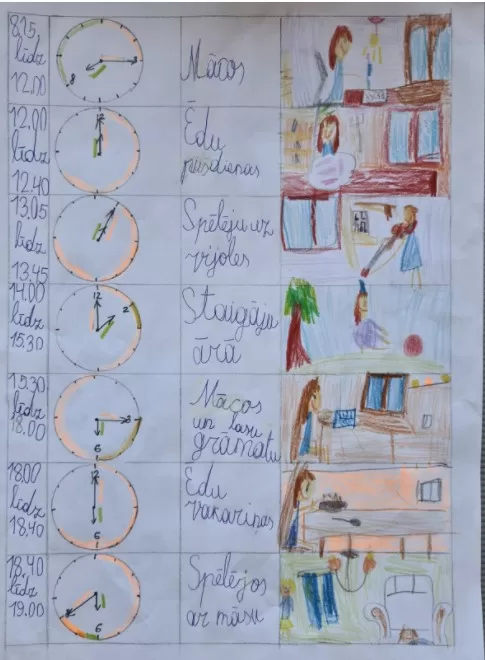 8.15,
līdz
12.00
3
8
Mācos
12.00
līdz
12.40
12
Ēdu
pusdienas
13.05
līdz
13.45
Spēlēju uz
vijoles
14.00
līdz
15.30
12
2
Staigāju
ārā
15.30
līdz
18.00
3
6
Mācos
un lasu
grāmatu
18.00
līdz
18.40
12
6
Ēdu
vakariņas
18.40
līdz
19.00
8
6
Spēlējos
ar māsu